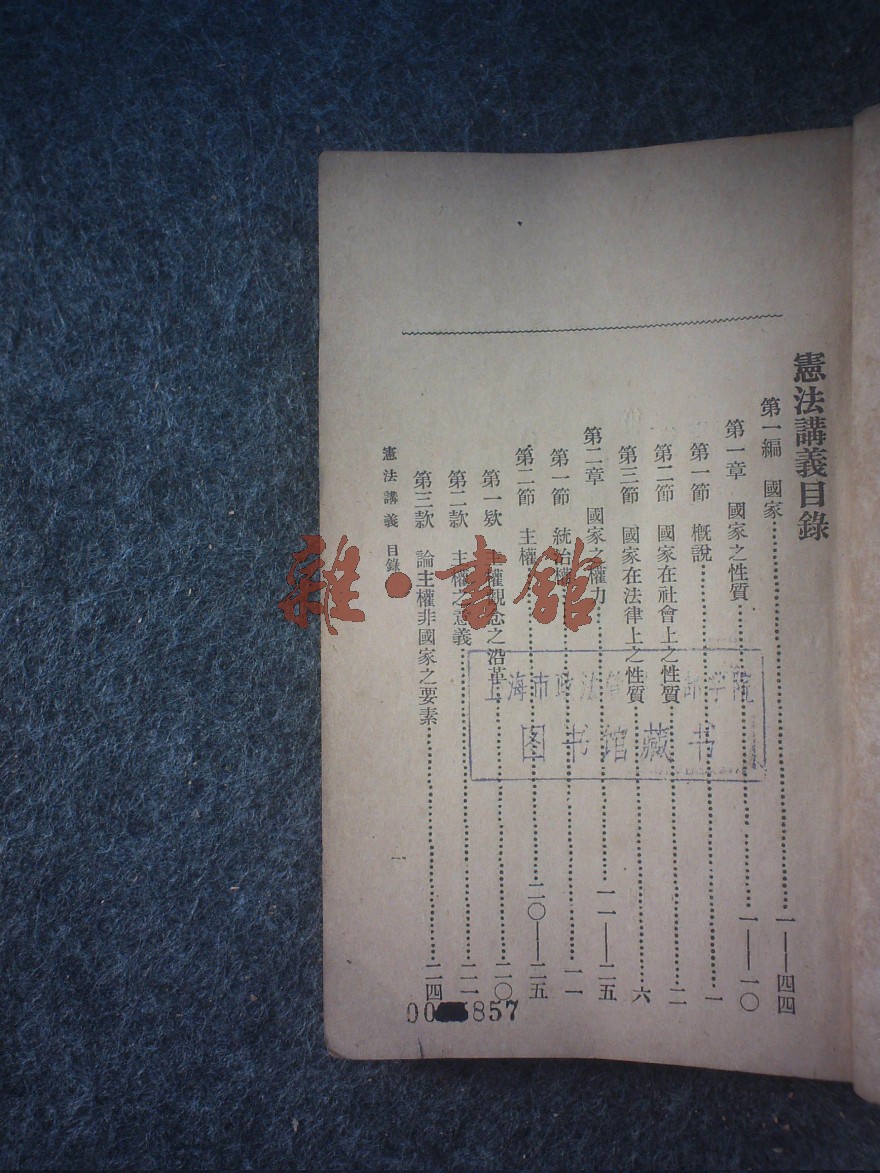 憲法講義目錄
第一編　國家……一——四四
第一章　國家之性質……一——一〇
第一節　槪說……一
第二節　國家在社會上之性質……二
第三節　國家在法律上之性質……六
第二章　國家之權力……一一——二五
第一節　統治權……一一
第二節　主權……二〇——二五
第一欵　主權觀念之沿革……二〇
第二款　主權之意義……二二
第三款　論主權非國家之要素……二四
憲法講義　目錄
一
雜·書館
上海市政法管 部学院
图书馆藏书
00 5857